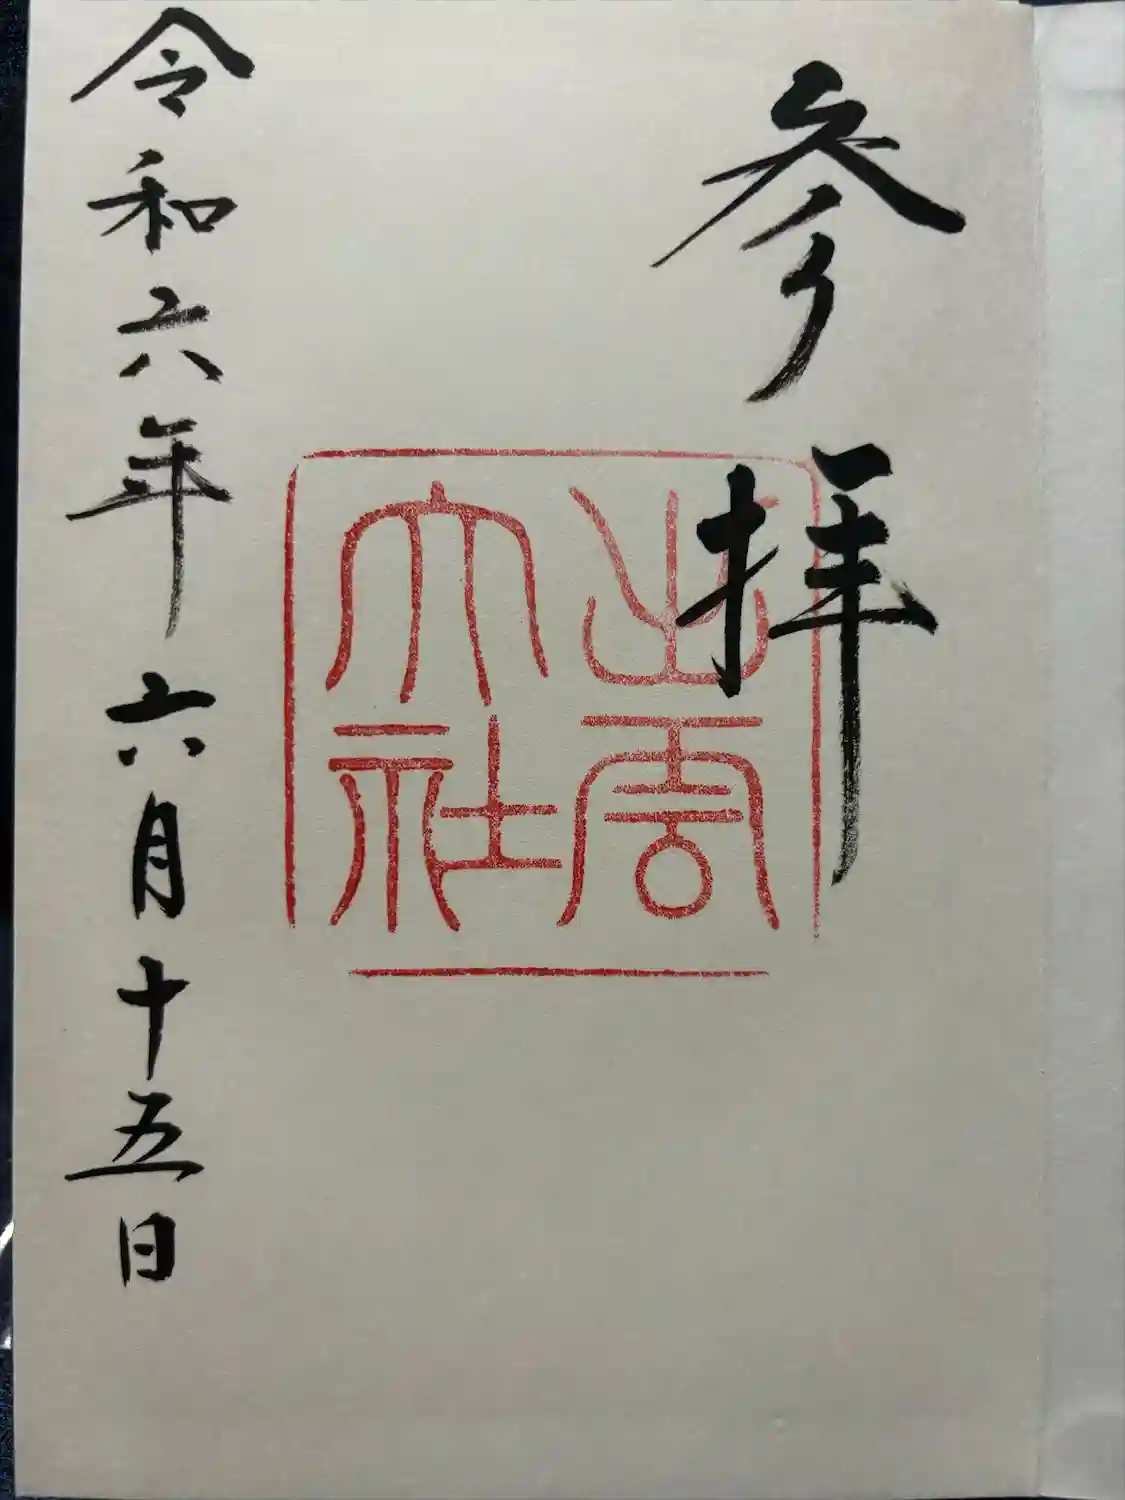 参拝
出雲
大社
令和六年六月十五日